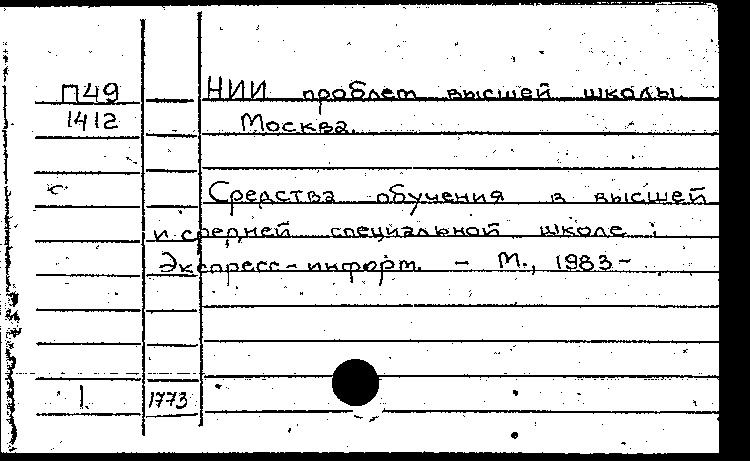 П49 НИИ проблем высшей школы
1412 Москва.
с Средства обучения в высшей
и средней специальной школе :
Экспресс-информ. - М., 1983-
1 1773